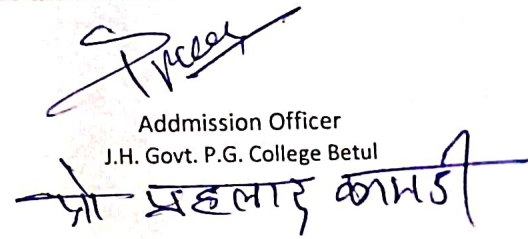 Addmission Officer
J.H. Govt. P.G. College Betul
प्रो प्रहलाद कामडी